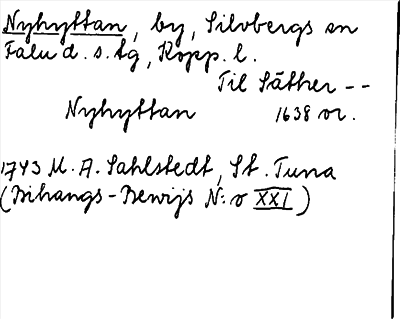 Nyhyttan, by, Silvbergs sn
Falu d. s. tg, Kopp. l.
Til Säther --
Nyhyttan 1638 or.
1743 M. A. Sahlstedt, St. Tuna
(Bihangs-Bewijs N:o XXI)